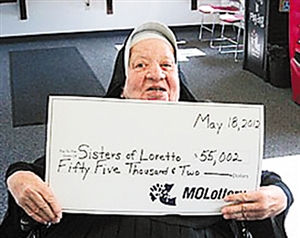 May 18, 2012
Sisters of Loretto $55,002
Fifty Five Thousand & Two Dollars
MOLottery